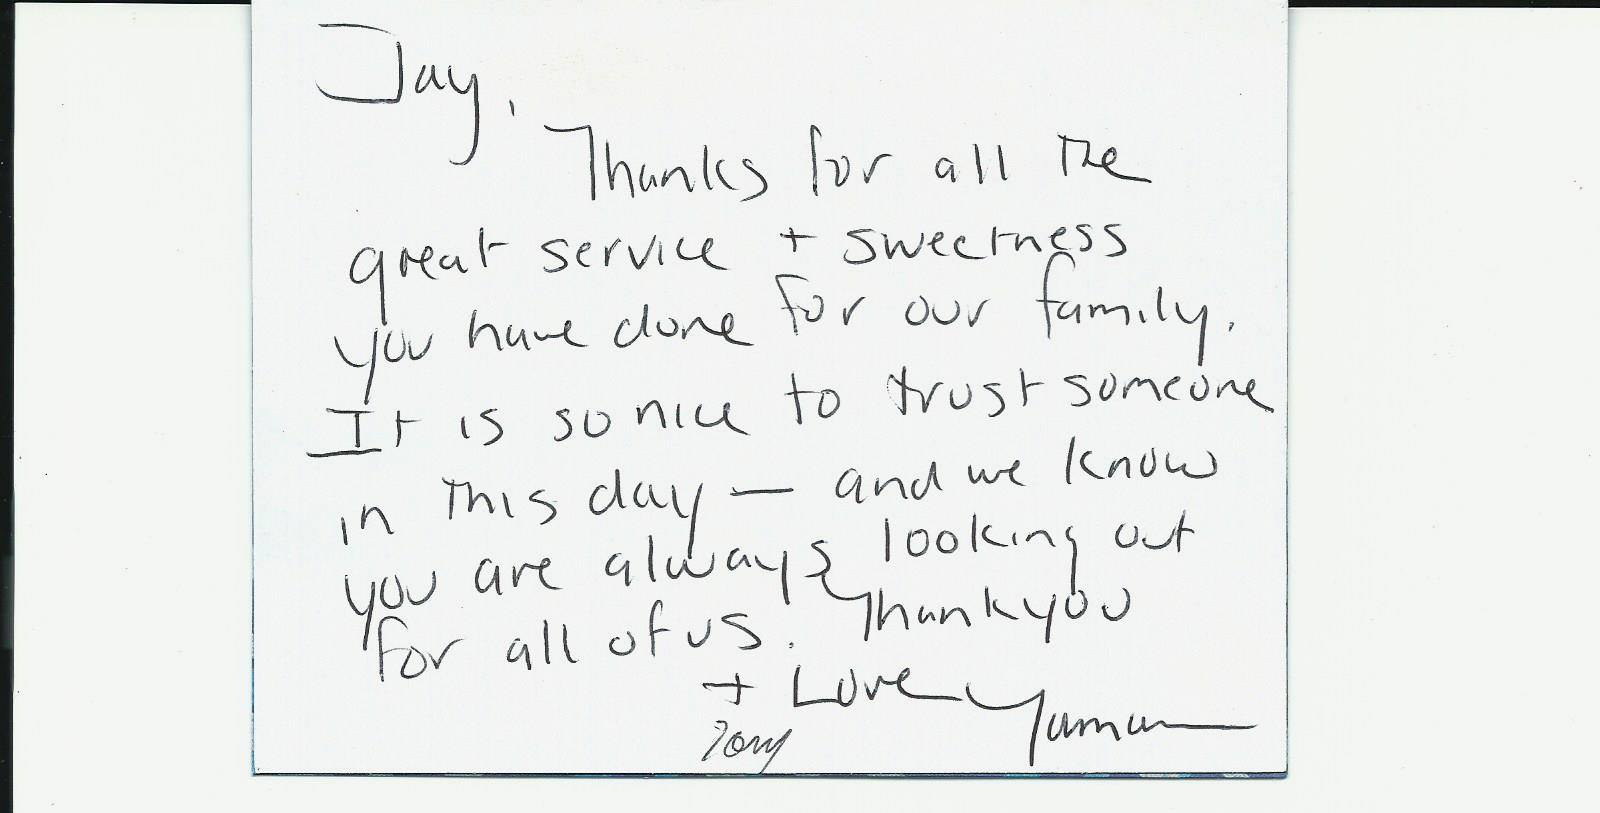 Jay,
Thanks for all the
great service + sweetness
you have done for our family.
It is so nice to trust someone
in this day — and we know
you are always looking out
for all of us. Thank you
+ Love
Tony